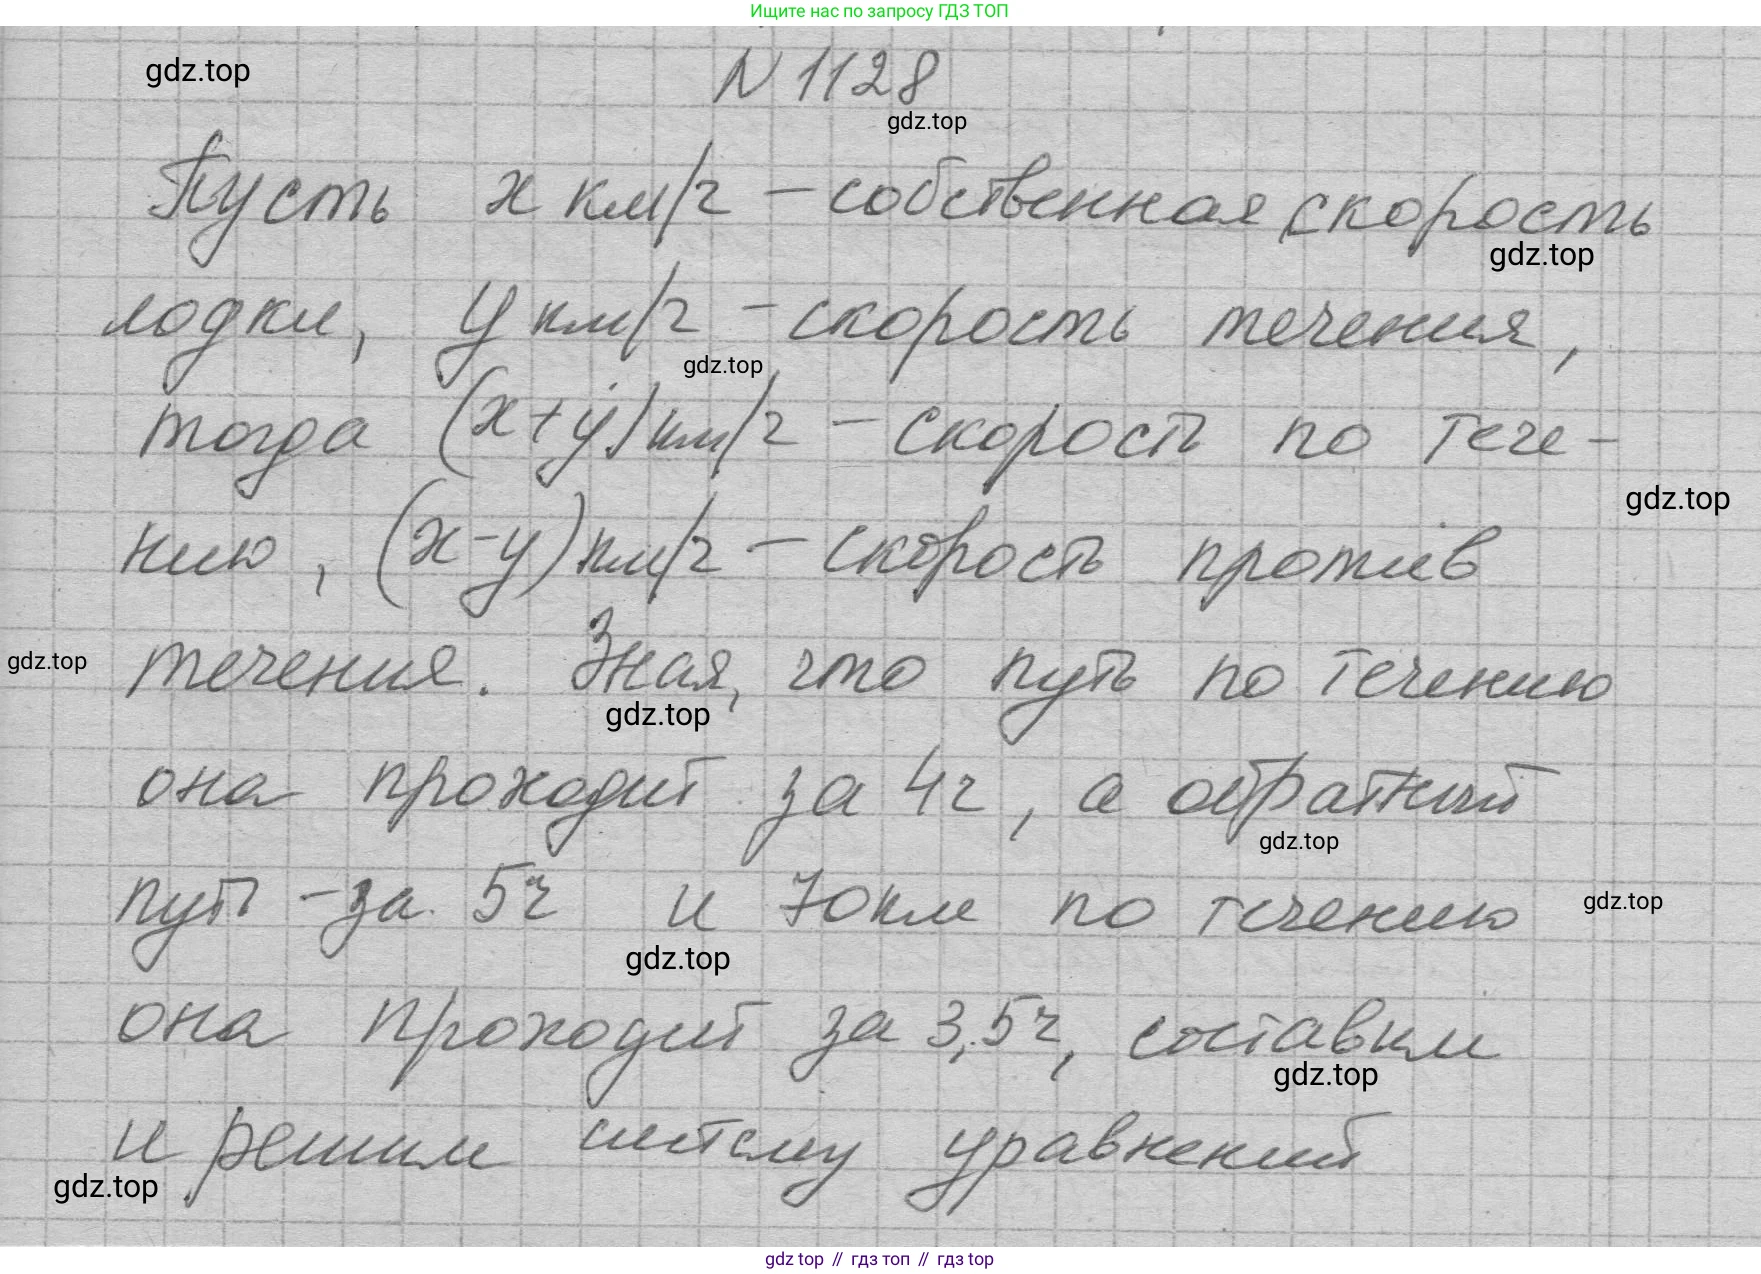 Ищите нас по запросу ГДЗ ТОП
N 1128
gdz.top
gdz.top
Пусть x км/ч – собственная скорость
gdz.top
лодки, y км/ч – скорость течения,
gdz.top
тогда (x+y) км/ч – скорость по тече-
gdz.top
нию, (x-y) км/ч – скорость против
течения. Зная, что путь по течению
gdz.top
gdz.top
она проходит за 4ч, а обратный
gdz.top
путь – за 5ч и 70км по течению
gdz.top
gdz.top
она проходит за 3,5ч, составим
gdz.top
и решим систему уравнений
gdz.top
gdz top // гдз топ // gdz top